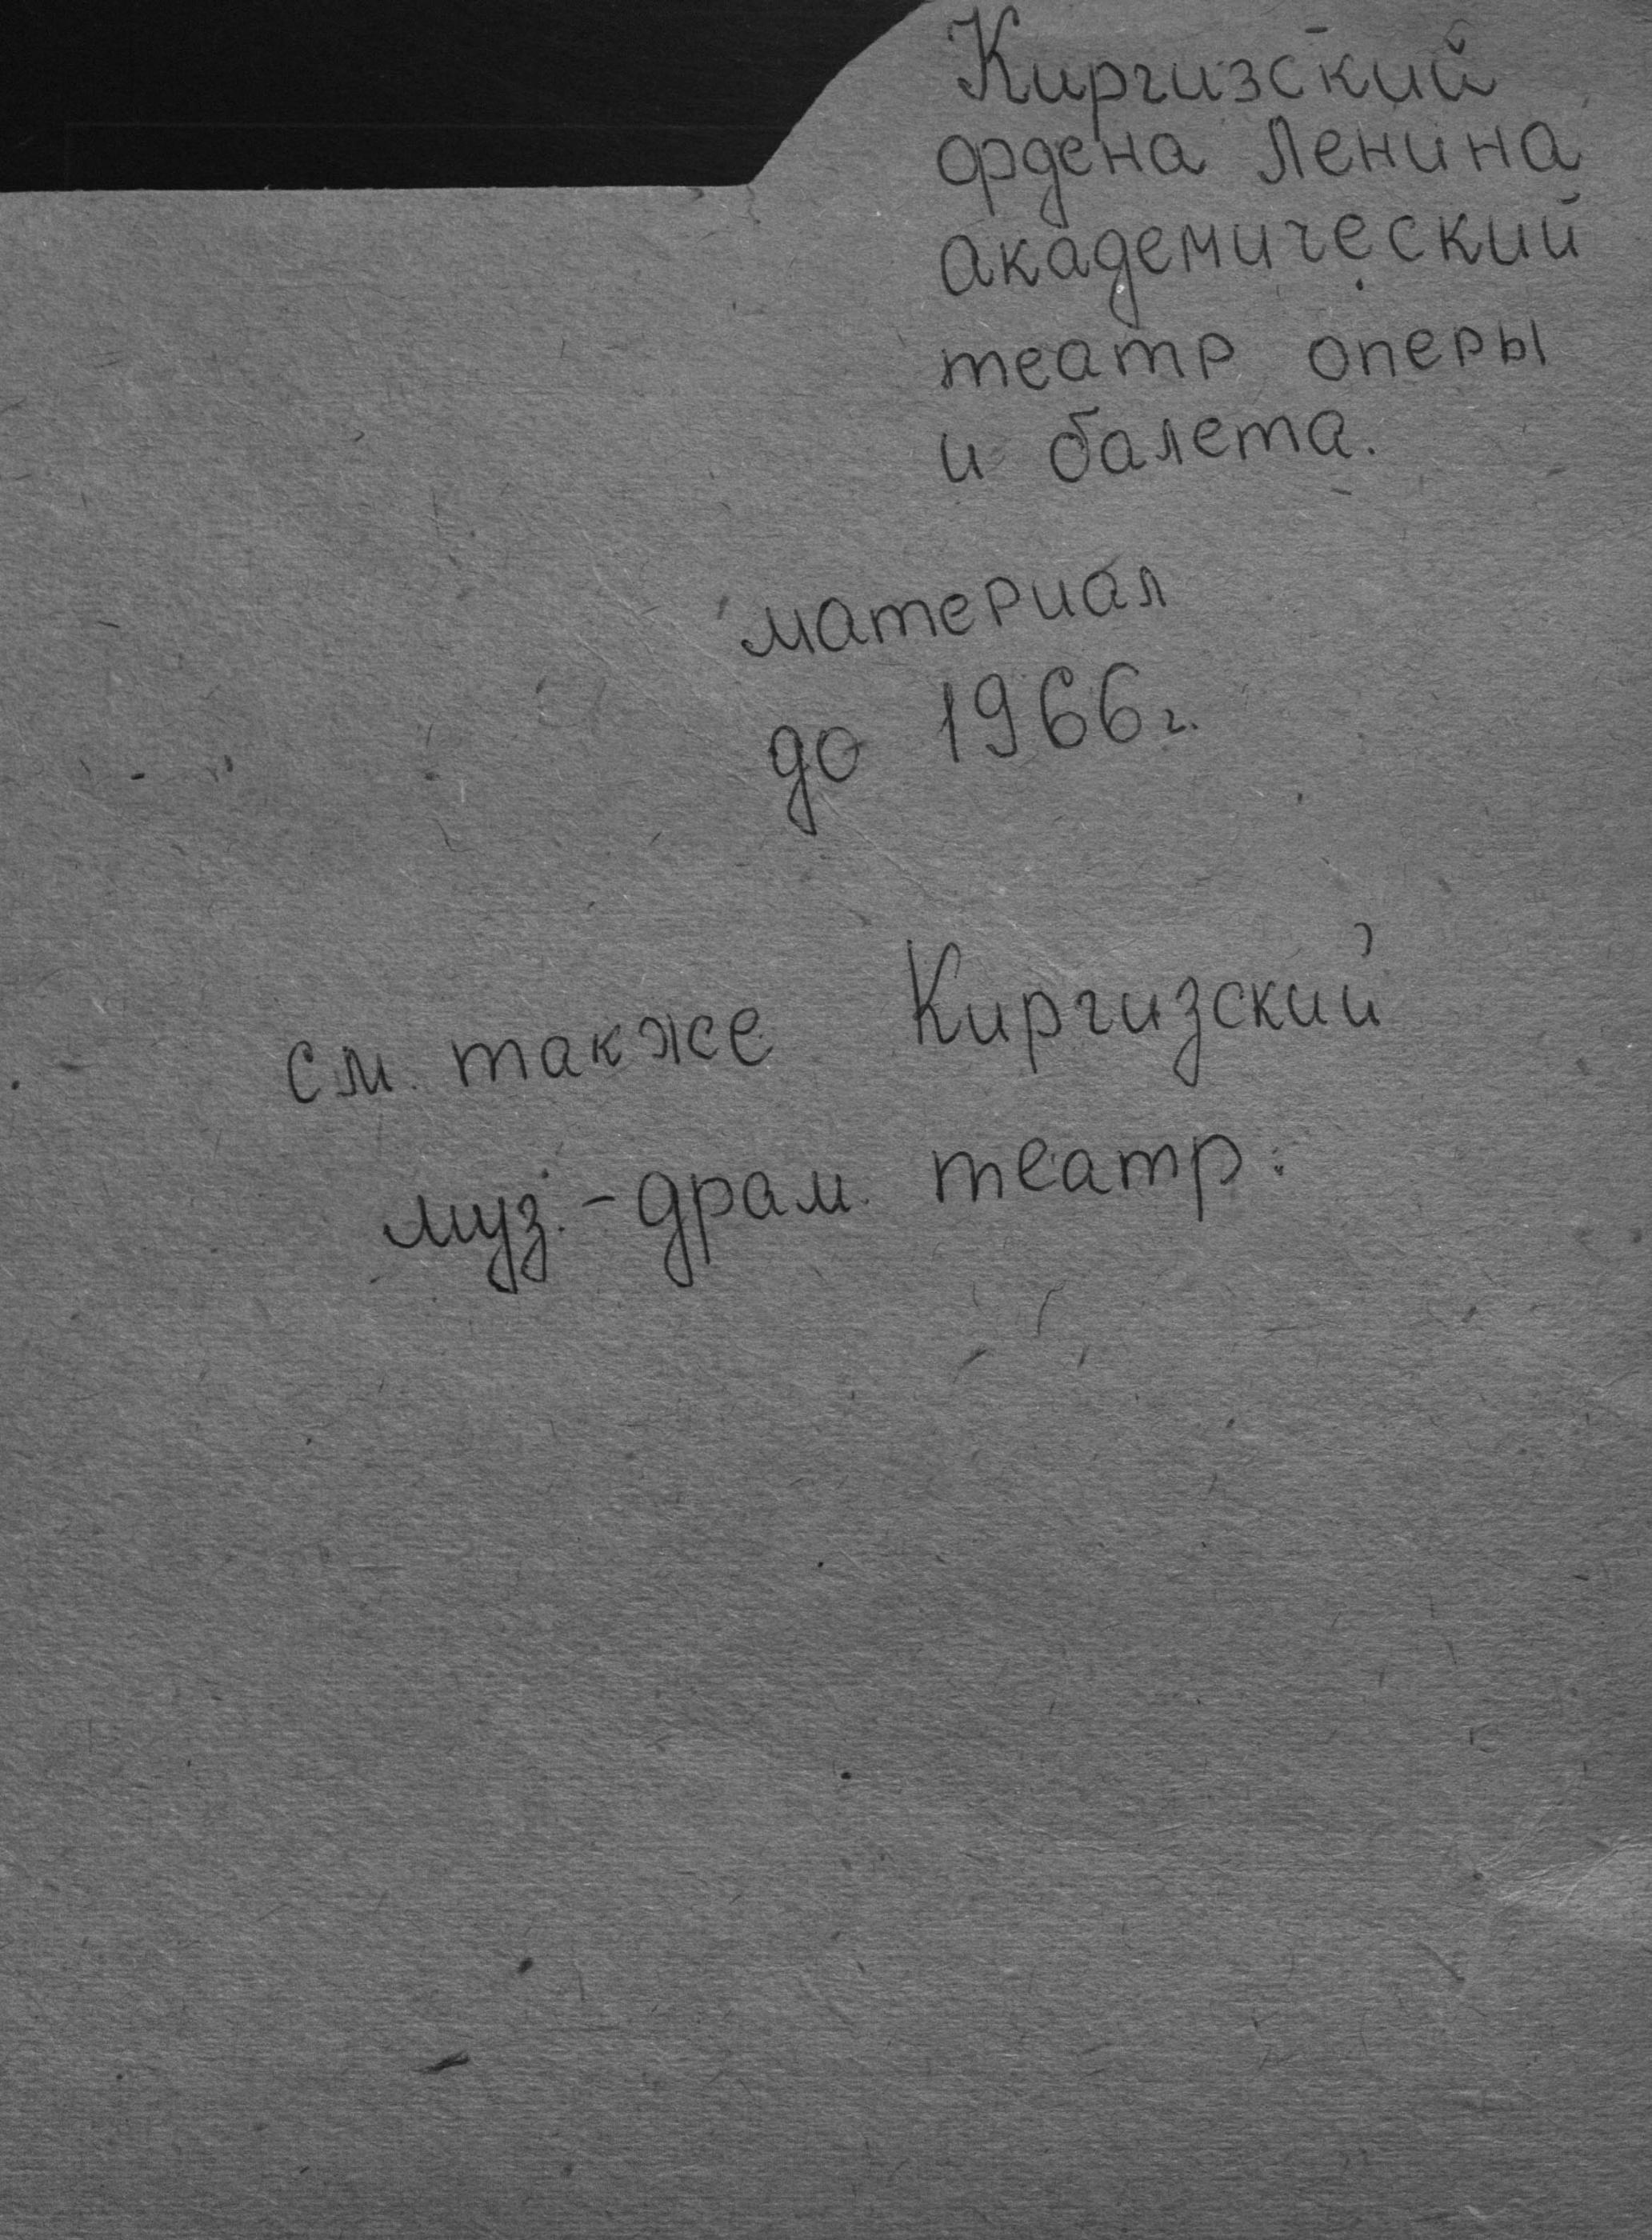 Киргизский
ордена Ленина
академический
театр оперы
и балета.
материал
до 1966 г.
см. также Киргизский
муз.-драм. театр.